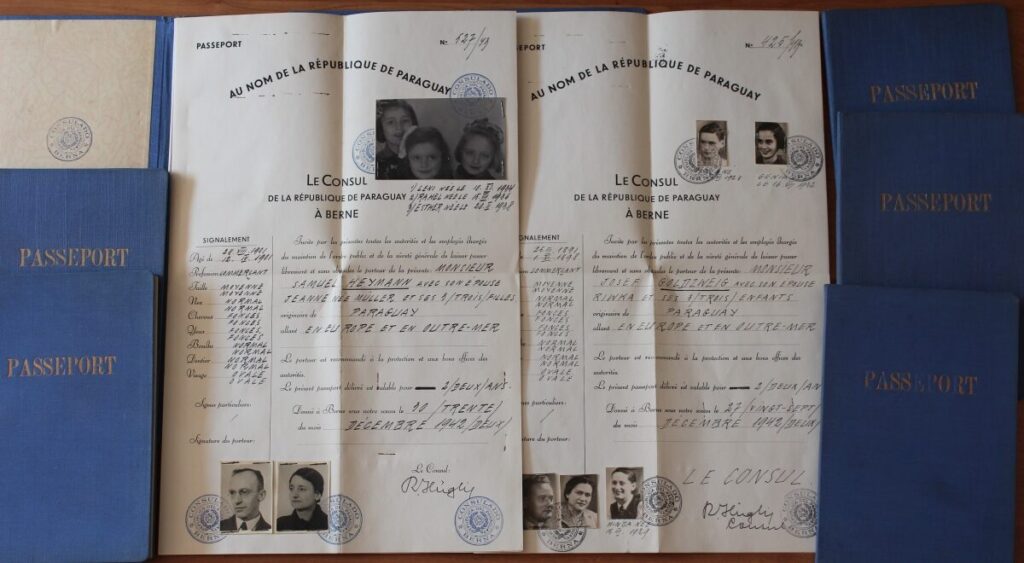 PASSEPORT
PASSEPORT
PASSEPORT
No 127/43
AU NOM DE LA RÉPUBLIQUE DE PARAGUAY
CONSULADO
BERNA
LE CONSUL
DE LA RÉPUBLIQUE DE PARAGUAY
À BERNE
ESTHER
SIGNALEMENT
Âgé de
1901
1901
Profession COMMERÇANT
Taille MOYENNE
MOYENNE
Nez NORMAL
NORMAL
Cheveux FONCES
FONCES
Yeux FONCES
FONCES
Bouche NORMAL
NORMAL
Dentier NORMAL
NORMAL
Visage OVALE
OVALE
Signes particuliers:
Signature du porteur:
Invite par les présentes toutes les autorités et les employés chargés
du maintien de l'ordre public et de la sûreté générale de laisser passer
librement et sans aides le porteur de la présente: MONSIEUR
SAMUEL HEYMANN AVEC SON EPOUSE
JEANNE NEE MULLER ET SES 3/TROIS/FILLES
originaire de PARAGUAY
allant EN EUROPE ET EN OUTRE-MER
Le porteur est recommandé à la protection et aux bons offices des
autorités.
Le présent passeport délivré est valable pour 2/DEUX/ANS.
Donné à Berne sous notre sceau le 30 /TRENTE/
du mois DECEMBRE 1942/DEUX/
Le Consul:
R. Hügly
CONSULADO
BERNA
PASSEPORT
No 425/
AU NOM DE LA RÉPUBLIQUE DE PARAGUAY
LE CONSUL
DE LA RÉPUBLIQUE DE PARAGUAY
À BERNE
SIGNALEMENT
1891
1898
COMMERÇANT
MOYENNE
MOYENNE
NORMAL
NORMAL
FONCES
FONCES
FONCES
FONCES
NORMAL
NORMAL
NORMAL
NORMAL
OVALE
OVALE
Signes particuliers:
Signature du porteur:
Invite par les présentes toutes les autorités et les employés chargés
du maintien de l'ordre public et de la sûreté générale de laisser passer
librement et sans aides le porteur de la présente: MONSIEUR
JOSEF GOLDZWEIG AVEC SON EPOUSE
RIWKA ET SES 3/TROIS/ENFANTS
originaire de PARAGUAY
allant EN EUROPE ET EN OUTRE-MER
Le porteur est recommandé à la protection et aux bons offices des
autorités.
Le présent passeport délivré est valable pour 2/DEUX/AN
Donné à Berne sous notre sceau le 27 /VINGT-SEPT/
du mois DECEMBRE 1942/DEUX/
LE CONSUL
R. Hügly
Consul
PASSEPORT
PASSEPORT
PASSEPORT